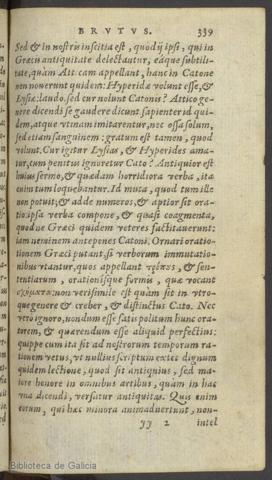 BRVTVS. 339
Sed & in nostris inscitia est, quod ij ipsi, qui in
Græcis antiquitate delectantur, eaque subtili-
tate, quam Atticam appellant, hanc in Catone
non nouerunt quidem: Hyperidæ volunt esse, &
Lysiæ: laudo. sed cur nolunt Catonis? Attico ge-
nere dicendi se gaudere dicunt. sapienter id qui-
dem, atque vtinam imitarentur, nec ossa solum,
sed etiam sanguinem: gratum est tamen, quod
volunt. Cur igitur Lysias, & Hyperides ama-
tur, cum penitus ignoretur Cato? Antiquior est
huius sermo, & quædam horridiora verba, ita
enim tum loquebantur. Id muta, quod tum ille
non potuit; & adde numeros, & aptior sit ora-
tio: ipsa verba compone, & quasi coagmenta,
quod ne Græci quidem veteres factitauerunt:
iam neminem antepones Catoni. Ornari oratio-
tionem Græci putant, si verborum immutatio-
nibus vtantur, quos appellant τρόπους, & sen-
tentiarum, orationisque formis, quæ vocant
σχήματα: non verisimile est quàm sit in vtro-
que genere & creber, & distinctus Cato. Nec
vero ignoro, nondum esse satis politum hunc ora-
torem, & quærendum esse aliquid perfectius:
quippe cum ita sit ad nostrorum temporum ra-
tionem vetus, vt nullius scriptum extet dignum
quidem lectione, quod sit antiquius, sed ma-
iore honore in omnibus artibus, quàm in hac
vna dicendi, versatur antiquitas. Quis enim
eorum, qui hæc minora animaduertunt, non-
yy 2 intel
Biblioteca de Galicia